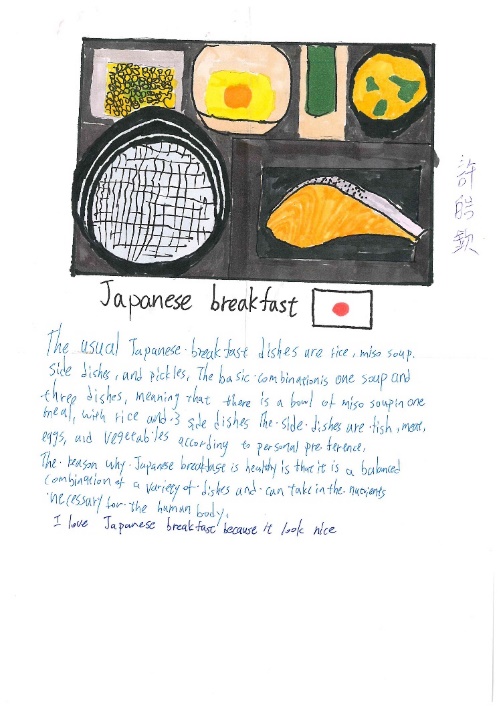 許皓欽
Japanese breakfast
The usual Japanese breakfast dishes are rice, miso soup.
Side dishes, and pickles. The basic combination is one soup and
three dishes, meaning that there is a bowl of miso soup in one
meal, with rice and 3 side dishes The side dishes are fish, meat,
eggs, and vegetables according to personal preference.
The reason why Japanese breakfast is healthy is that it is a balanced
combination of a variety of dishes and can take in the nutrients
necessary for the human body.
I love Japanese breakfast because it look nice